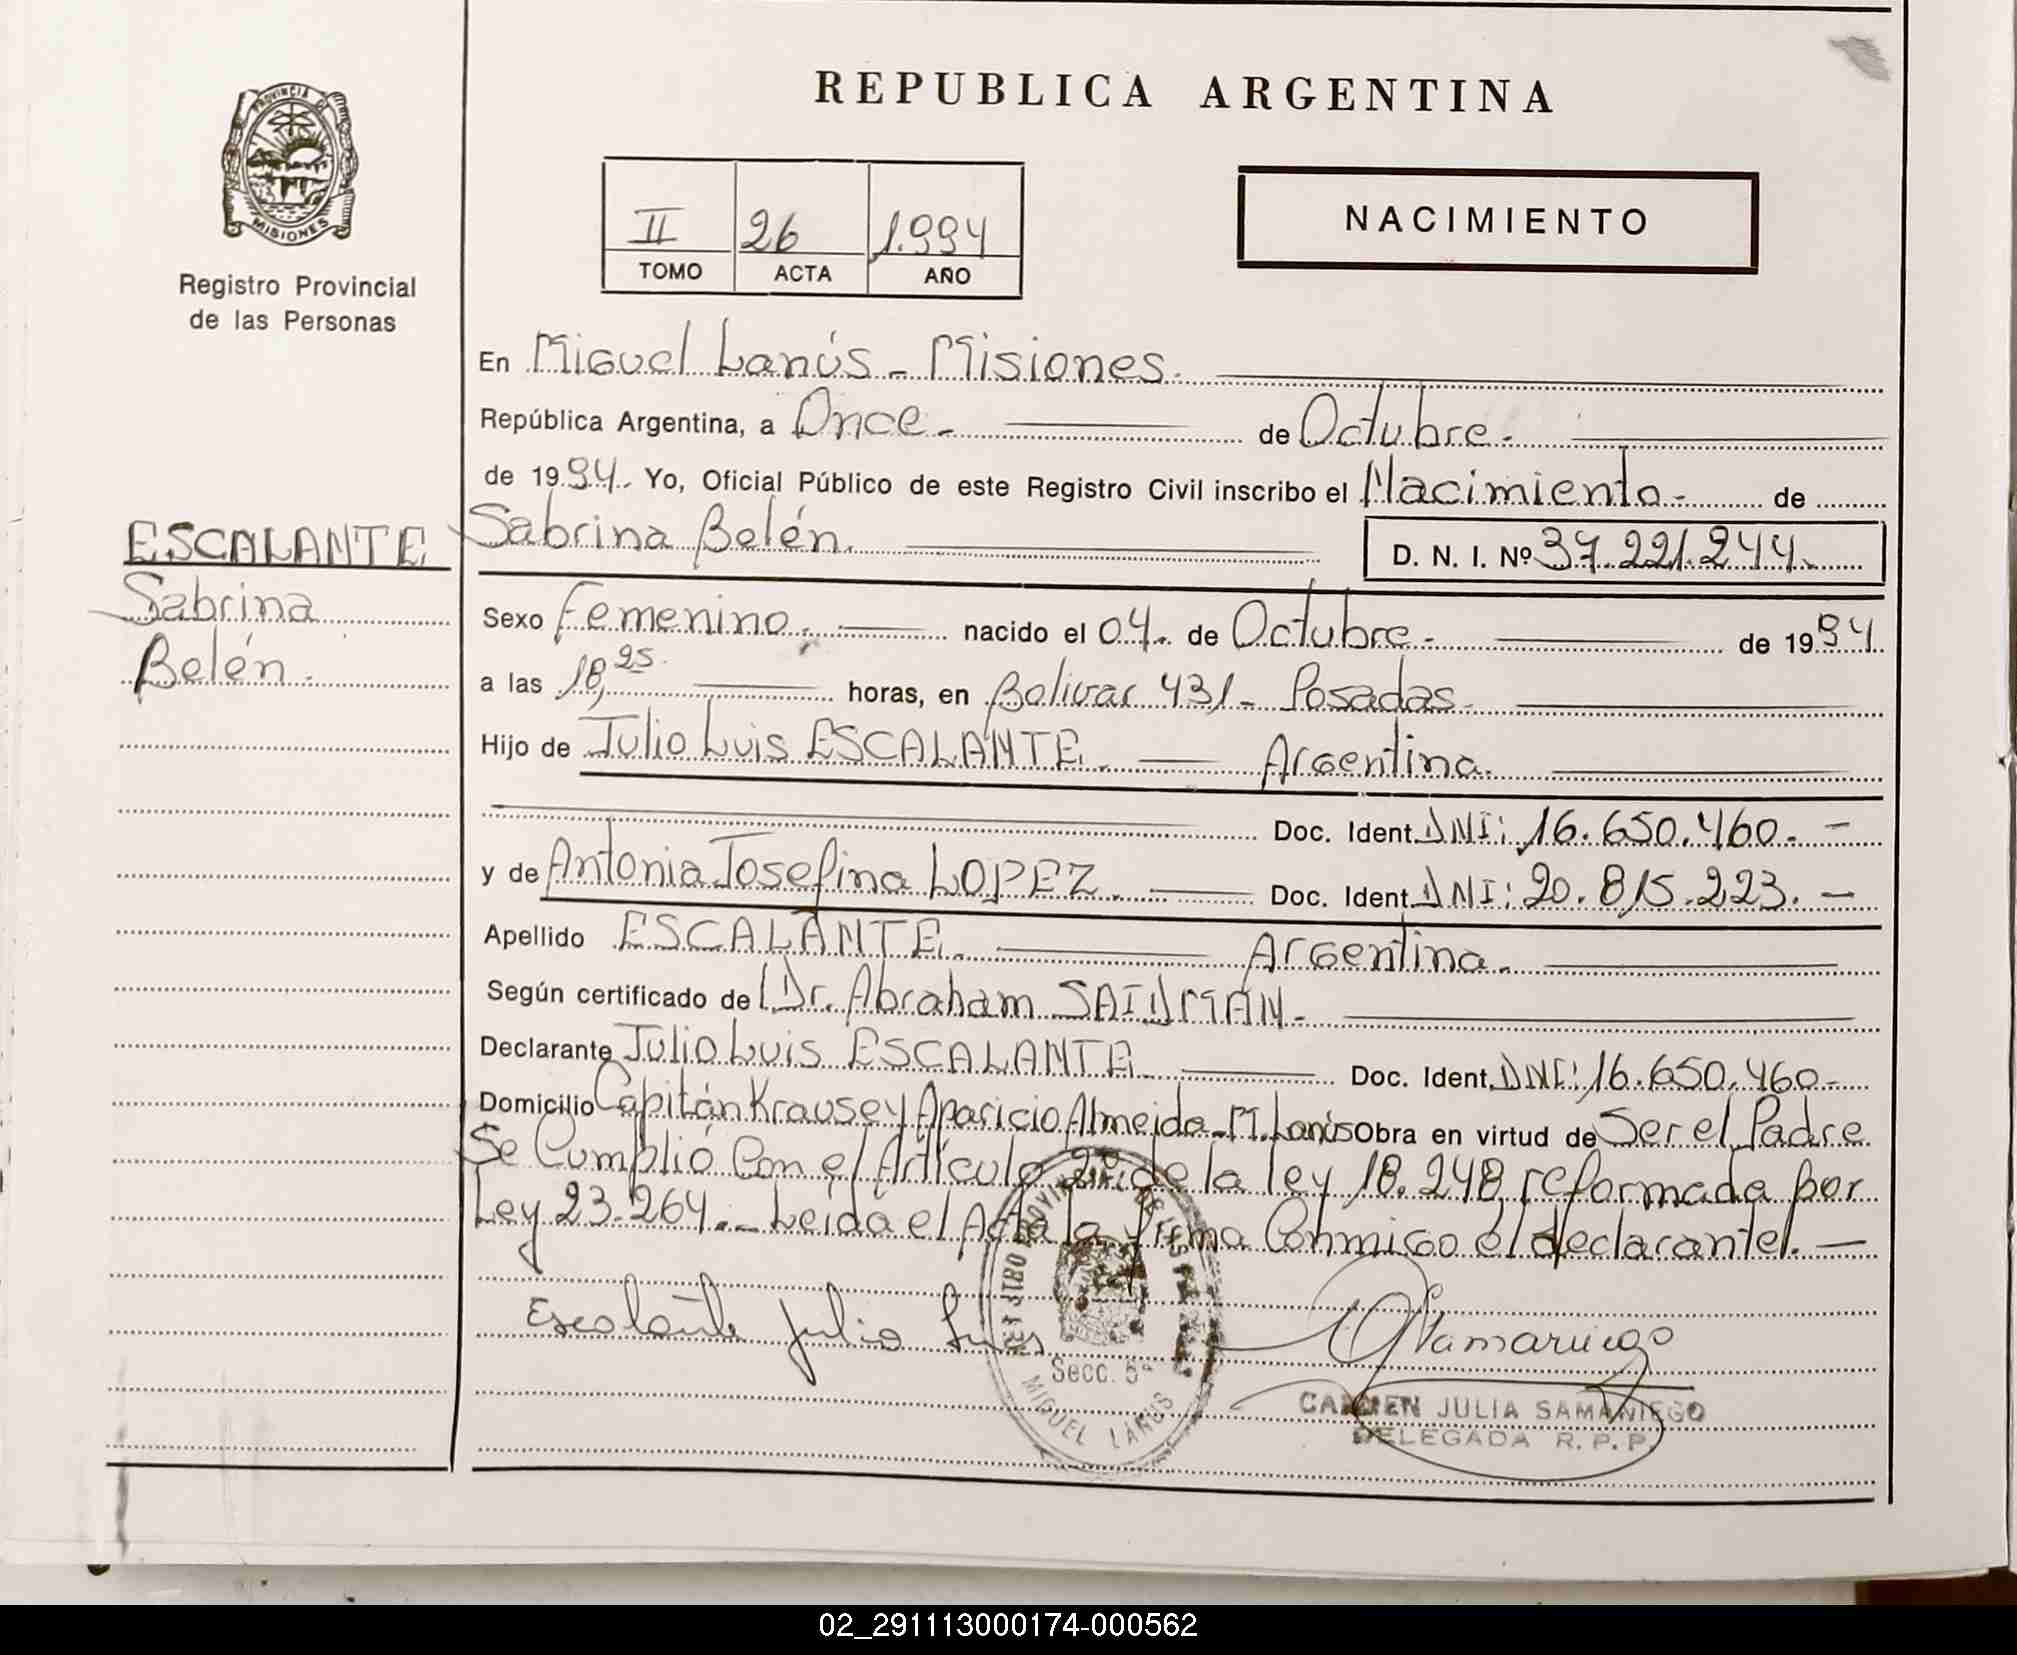 REPUBLICA ARGENTINA
PROVINCIA DE
MISIONES
Registro Provincial
de las Personas
II 26 1.994
TOMO ACTA AÑO
NACIMIENTO
En Miguel Lanús - Misiones.
República Argentina, a Once.- de Octubre.-
de 1994. Yo, Oficial Público de este Registro Civil inscribo el Nacimiento.- de
ESCALANTE
Sabrina
Belén.
Sabrina Belén. D. N. I. Nº 37.221.244.
Sexo Femenino. nacido el 04. de Octubre.- de 1994.
a las 18,25. horas, en Bolivar 431 - Posadas.
Hijo de Julio Luis ESCALANTE. Argentina.
Doc. Ident. DNI: 16.650.460.-
y de Antonia Josefina LOPEZ. Doc. Ident. DNI: 20.815.223.-
Apellido ESCALANTE. Argentina.
Según certificado de Dr. Abraham SAIDMAN.-
Declarante Julio Luis ESCALANTE Doc. Ident. DNI: 16.650.460-
Domicilio Capitán Krause y Aparicio Almeida - M. Lanús Obra en virtud de Ser el Padre
Se Cumplió Con el Artículo 2º de la ley 18.248 reformada por
Ley 23.264.- Leída el Acta la firma Conmigo el declarante.-
Escalante Julio Luis
Secc. 5ª
MIGUEL LANUS
CARMEN JULIA SAMANIEGO
DELEGADA R. P. P.
02_291113000174-000562